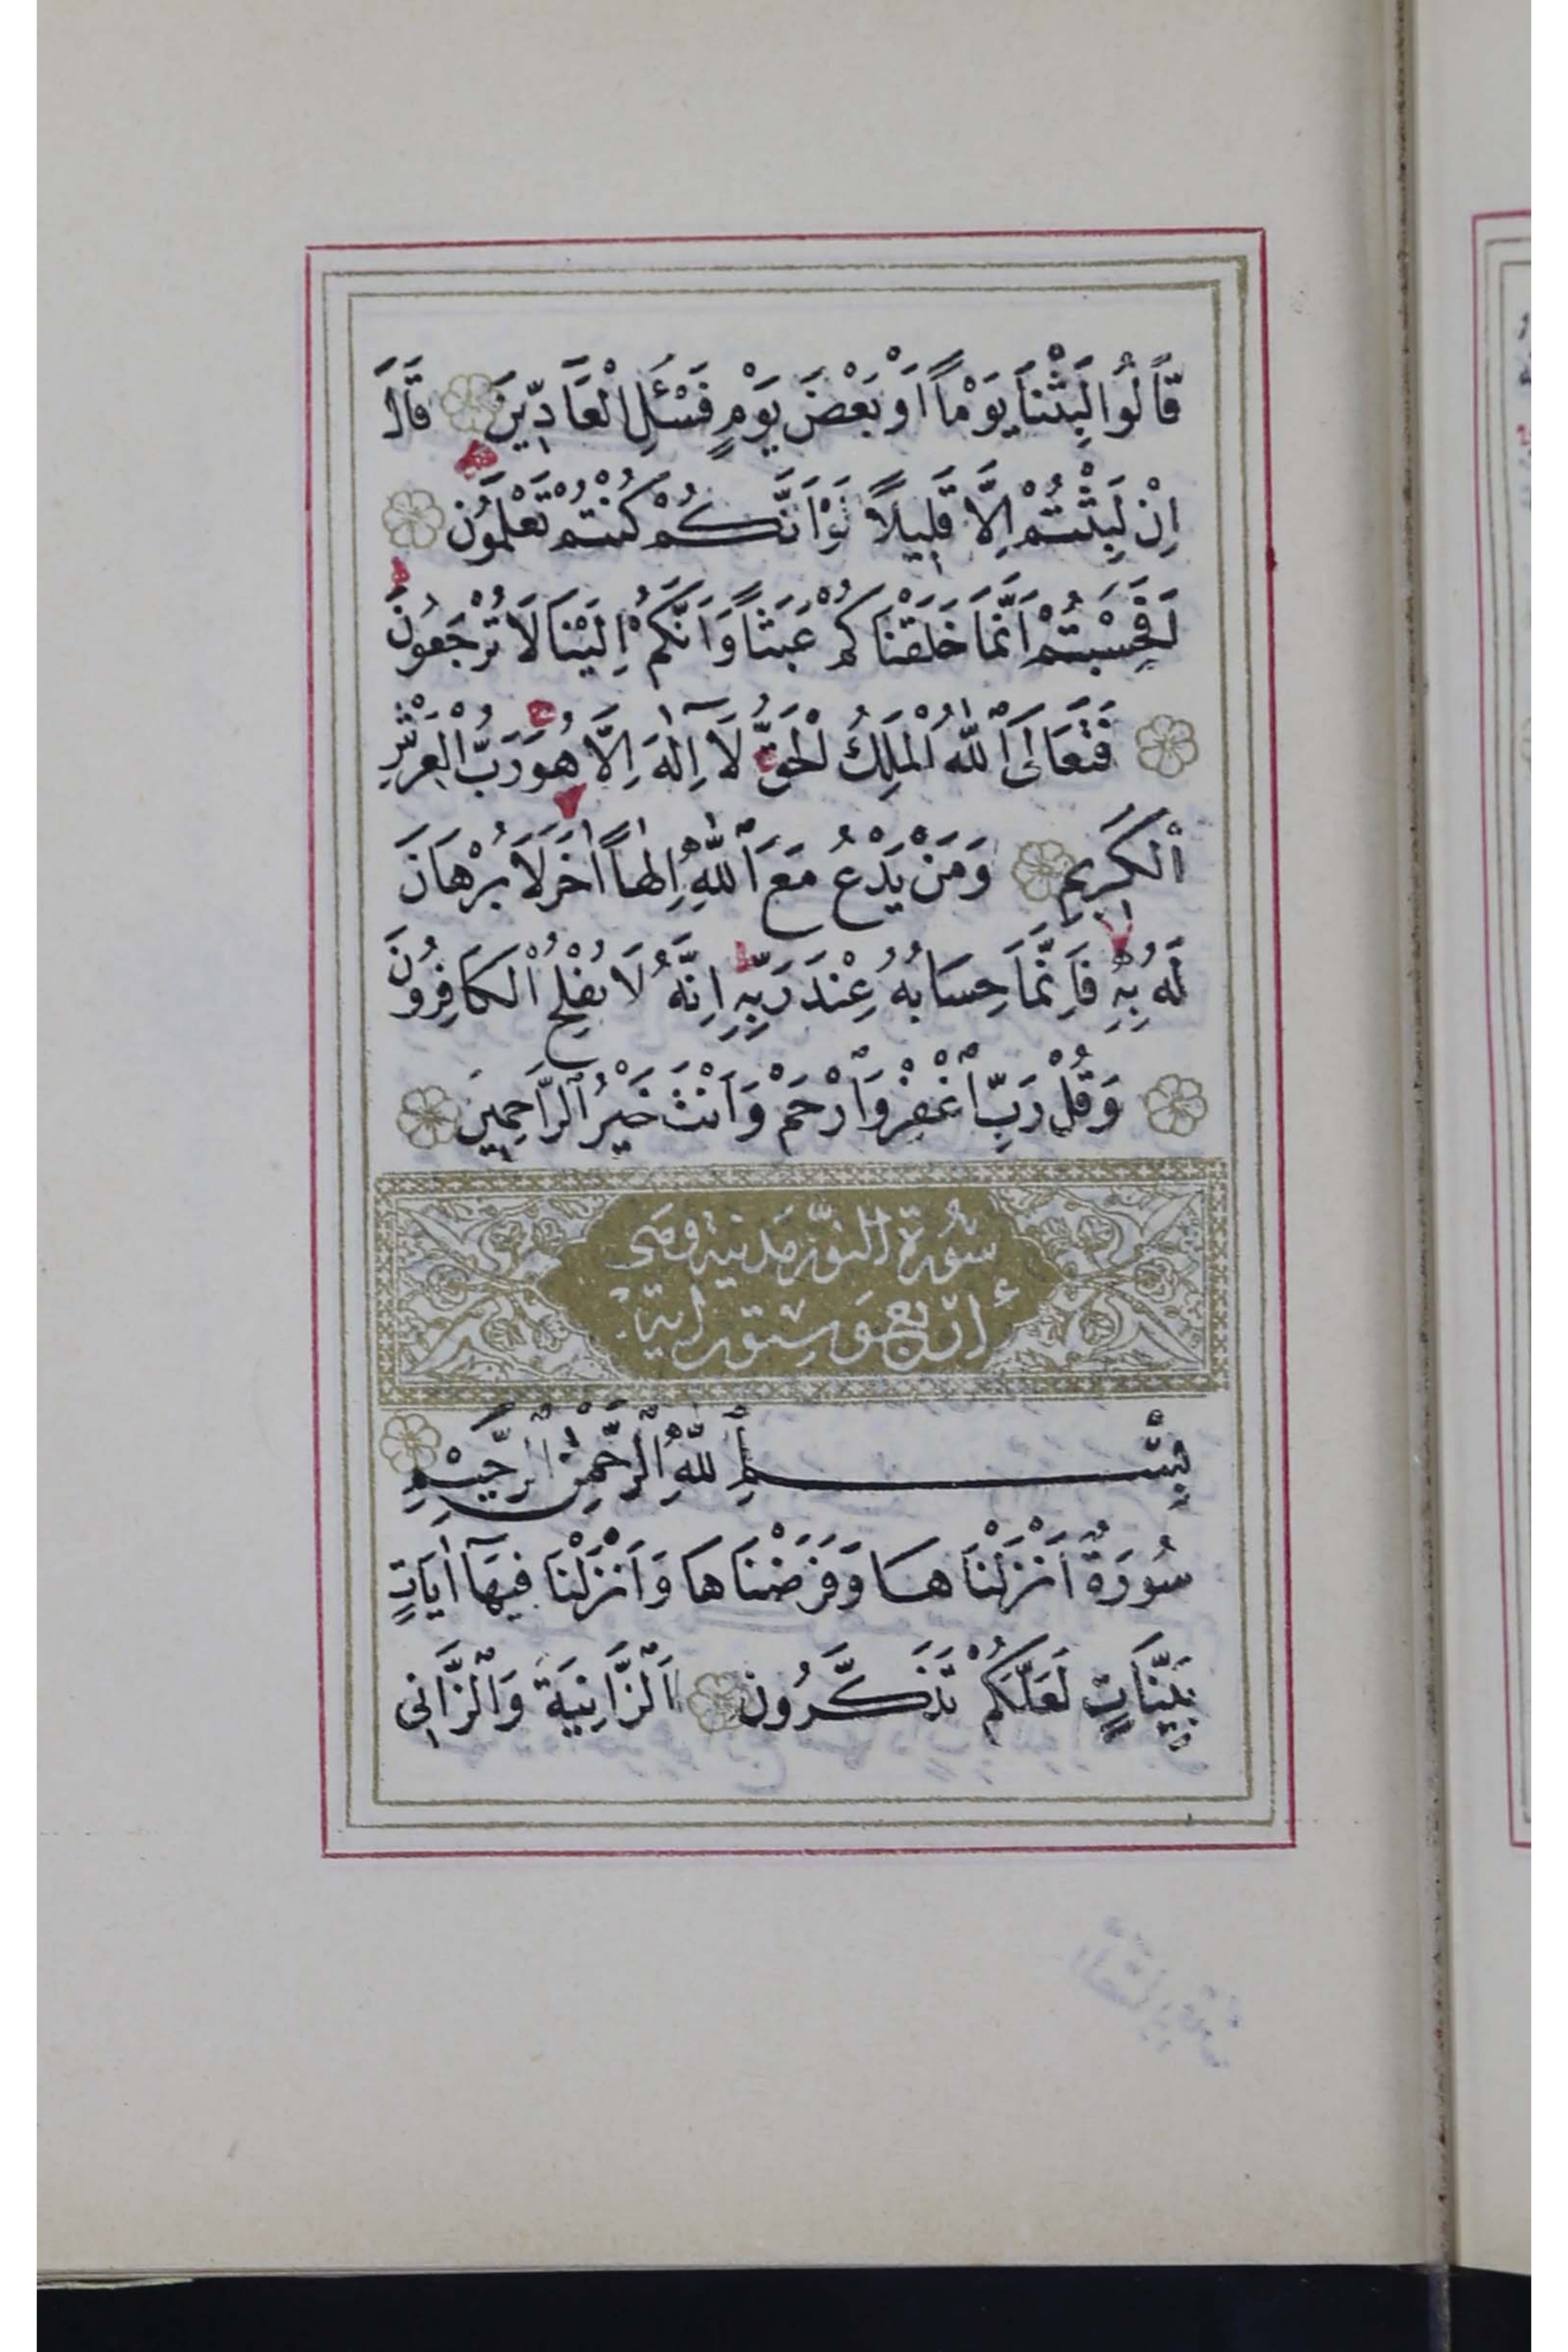 قَالُوا لَبِثْنَا يَوْمًا اَوْ بَعْضَ يَوْمٍ فَسْئَلِ الْعَادِّينَ قَالَ
اِنْ لَبِثْتُمْ اِلَّا قَلِيلًا لَوْ اَنَّكُمْ كُنْتُمْ تَعْلَمُونَ
اَفَحَسِبْتُمْ اَنَّمَا خَلَقْنَاكُمْ عَبَثًا وَاَنَّكُمْ اِلَيْنَا لَا تُرْجَعُونَ
فَتَعَالَى ٱللّٰهُ ٱلْمَلِكُ الْحَقُّ لَٓا اِلٰهَ اِلَّا هُوَ رَبُّ الْعَرْشِ
ٱلْكَرِيمِ وَمَنْ يَدْعُ مَعَ ٱللّٰهِ اِلٰهًا اٰخَرَ لَا بُرْهَانَ
لَهُ بِهِ فَاِنَّمَا حِسَابُهُ عِنْدَ رَبِّهِ اِنَّهُ لَا يُفْلِحُ ٱلْكَافِرُونَ
وَقُلْ رَبِّ ٱغْفِرْ وَٱرْحَمْ وَاَنْتَ خَيْرُ ٱلرَّاحِمِينَ
سُورَةُ النُّورِ مَدَنِيَّة وَهِيَ
اربع وستون اية
بِسْمِ ٱللّٰهِ ٱلرَّحْمٰنِ ٱلرَّحِيمِ
سُورَةٌ اَنْزَلْنَاهَا وَفَرَضْنَاهَا وَاَنْزَلْنَا فِيهَٓا اٰيَاتٍ
بَيِّنَاتٍ لَعَلَّكُمْ تَذَكَّرُونَ اَلزَّانِيَةُ وَٱلزَّانِى